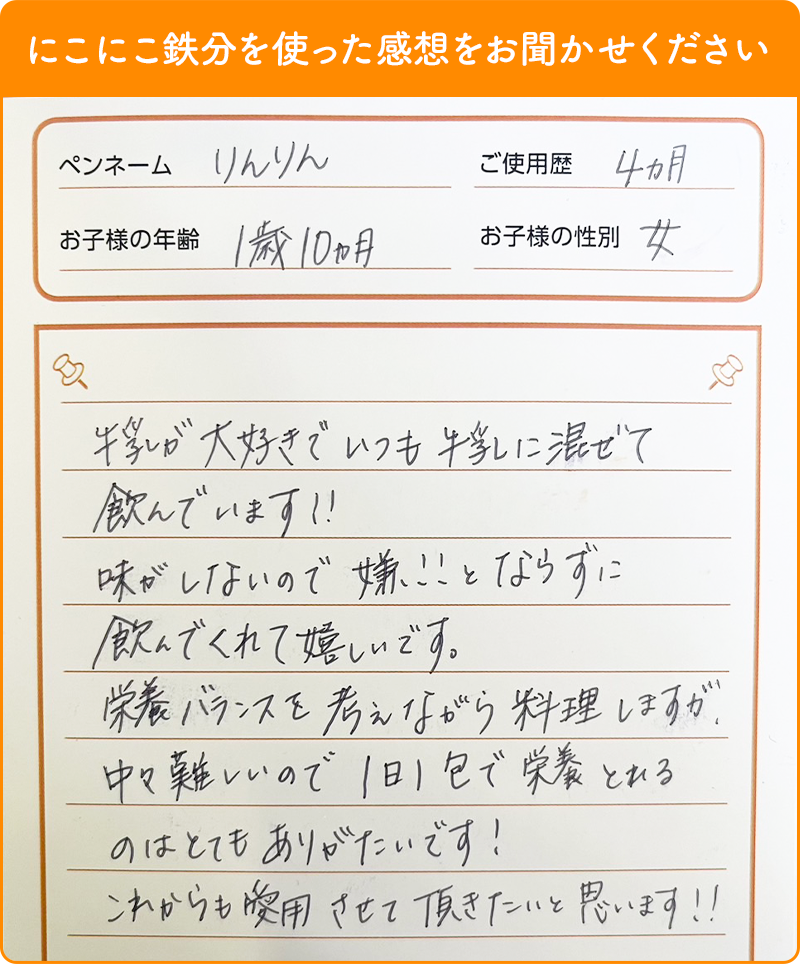 にこにこ鉄分を使った感想をお聞かせください
ペンネーム りんりん ご使用歴 4ヵ月
お子様の年齢 1歳10ヵ月 お子様の性別 女
牛乳が大好きでいつも牛乳に混ぜて
飲んでいます!!
味がしないので嫌!!とならずに
飲んでくれて嬉しいです。
栄養バランスを考えながら料理しますが、
中々難しいので1日1包で栄養とれる
のはとてもありがたいです!
これからも愛用させて頂きたいと思います!!